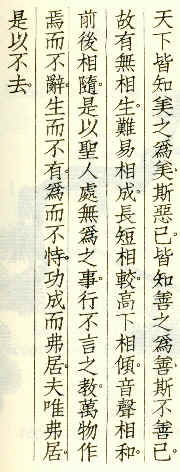 天下皆知美之為美。斯惡已。皆知善之為善。斯不善已。
故有無相生。難易相成。長短相較。高下相傾。音聲相和。
前後相隨。是以聖人處無為之事。行不言之教。萬物作
焉而不辭。生而不有。為而不恃。功成而弗居。夫唯弗居。
是以不去。